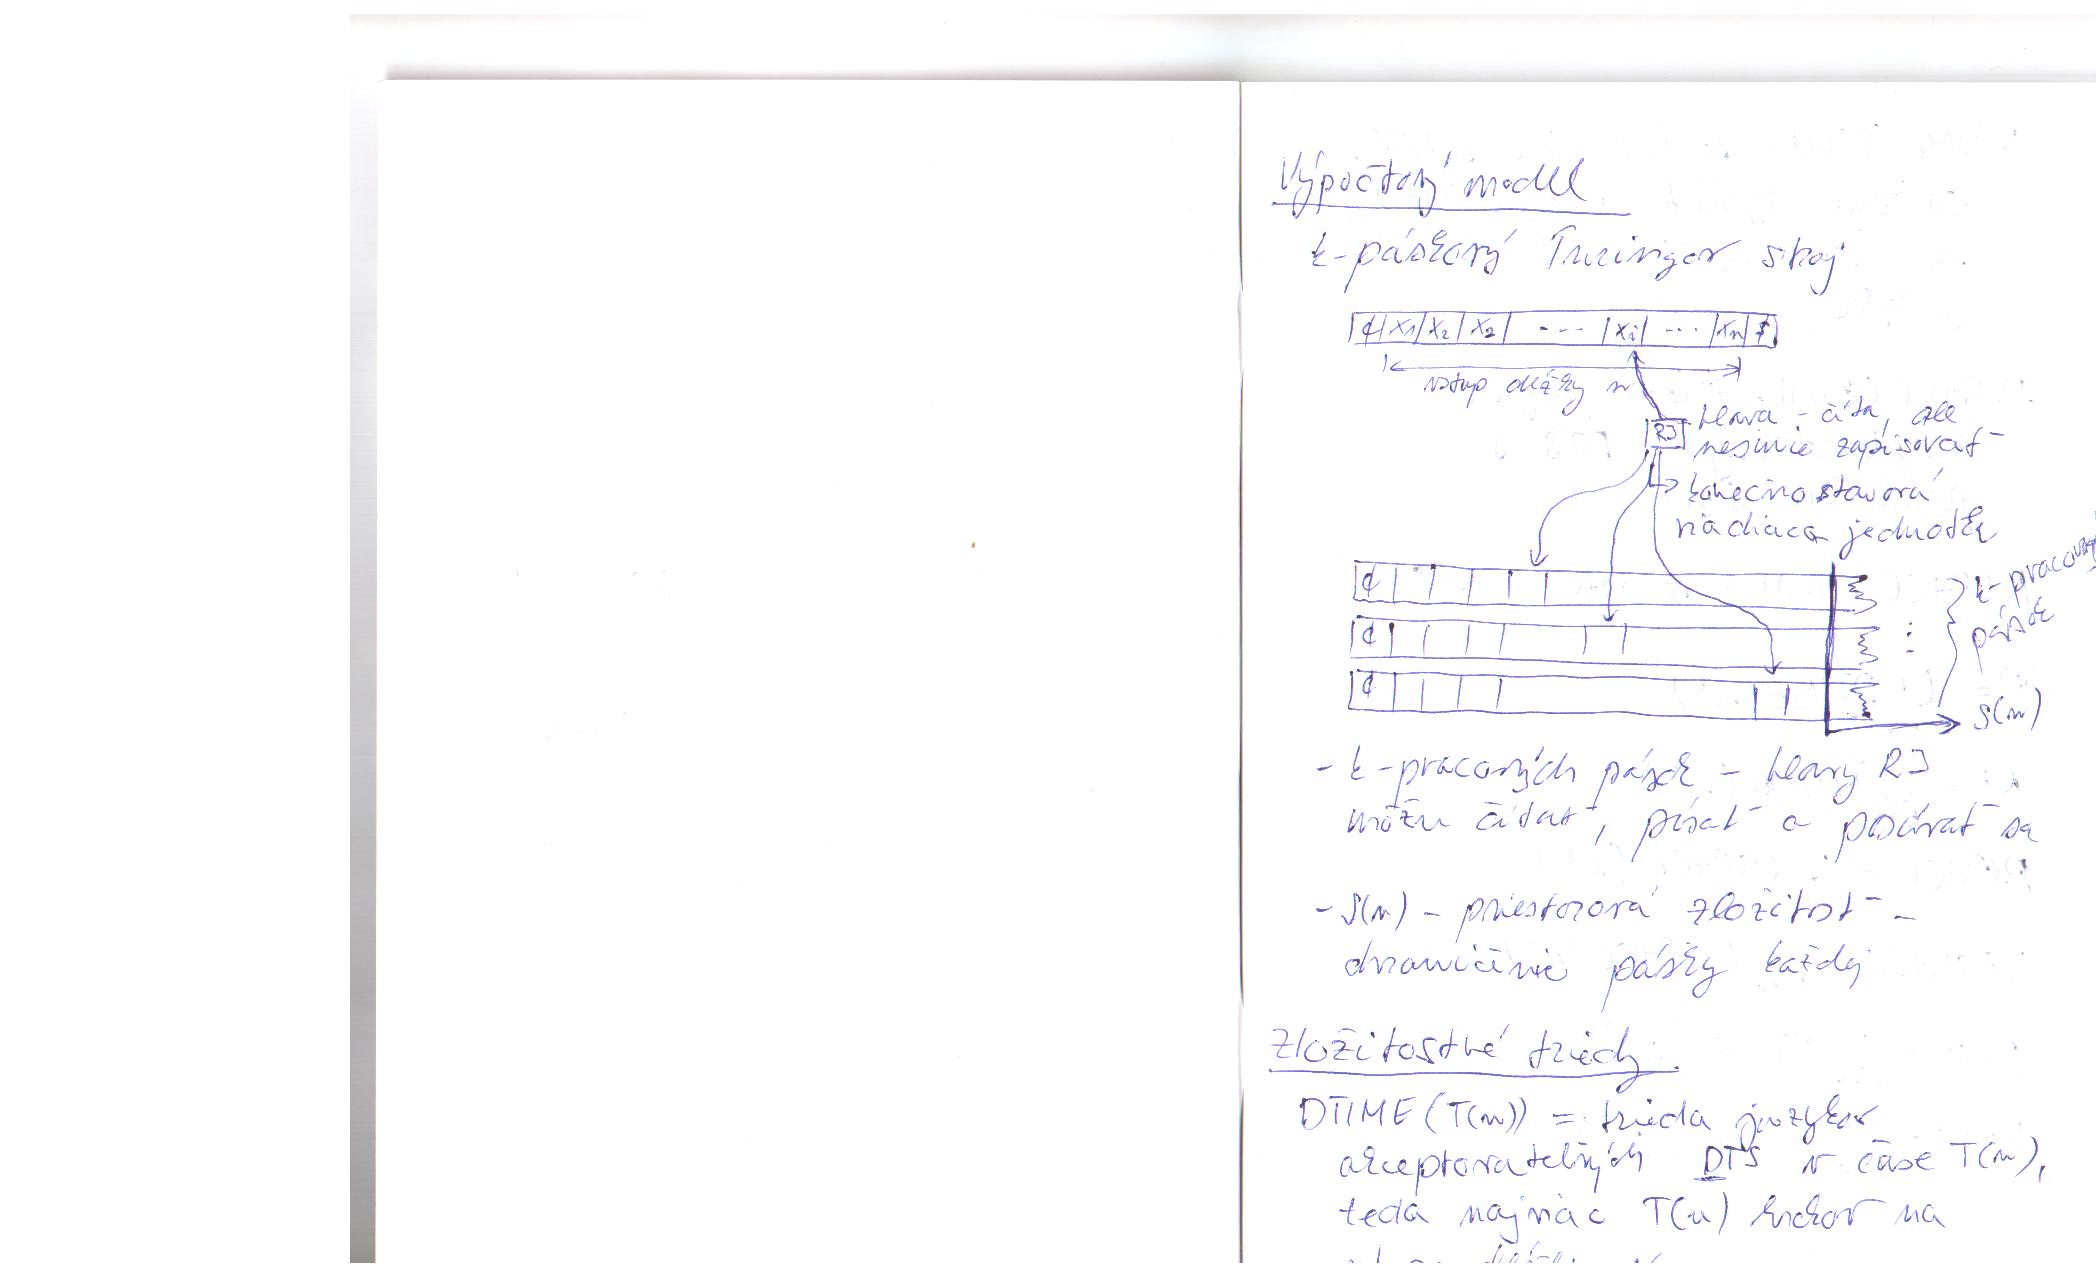 Výpočtový model
k-páskový Turingov stroj
¢ x1 x2 x2 ... xi ... xn $
vstup dĺžky n
hlava - číta, ale
RJ
nesmie zapisovať
konečnostavová
riadiaca jednotka
¢
¢
¢
k-pracovných
pások
S(n)
- k-pracovných pások - hlavy RJ
môžu čítať, písať a posúvať sa
- S(n) - priestorová zložitosť -
ohraničenie pásky každej
Zložitostné triedy
DTIME(T(n)) = trieda jazykov
akceptovateľných DTS v čase T(n),
teda najviac T(n) krokov na